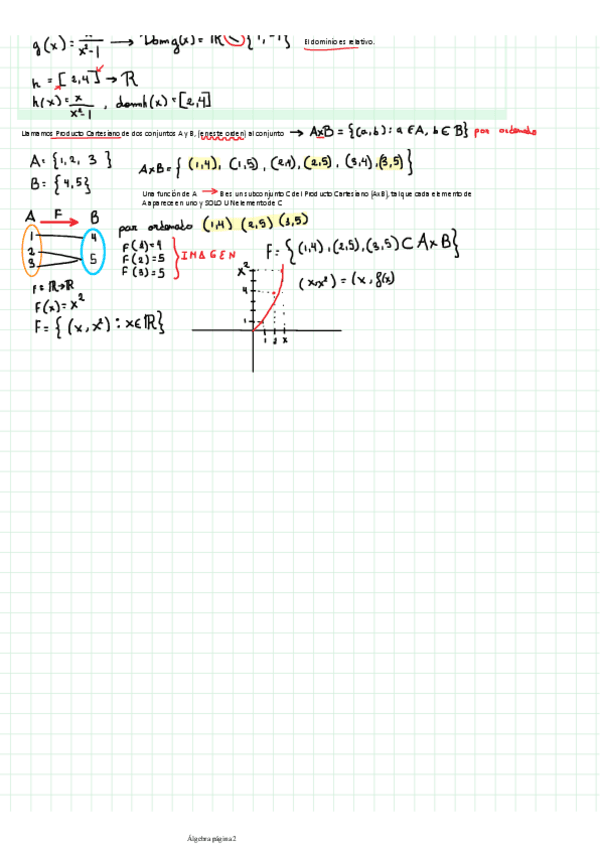 g(x) = x/(x²-1) → Dom g(x) = ℝ \ {1, -1} El dominio es relativo.
h = [2,4] → ℝ
h(x) = x/(x²-1) , domh(x) = [2,4]
Llamamos Producto Cartesiano de dos conjuntos A y B, (en este orden) al conjunto → AxB = {(a,b) : a ∈ A, b ∈ B} par ordenado
A = {1, 2, 3}
B = {4,5}
AxB = {(1,4), (1,5), (2,4), (2,5), (3,4), (3,5)}
Una función de A → B es un subconjunto C del Producto Cartesiano (AxB), tal que cada elemento de
A aparece en uno y SOLO UN elemento de C
A F B
1 4
2 5
3
par ordenado (1,4) (2,5) (3,5)
F(1)=4
F(2)=5
F(3)=5
IMAGEN
F = {(1,4), (2,5), (3,5) ⊂ A x B}
F = ℝ→ℝ
F(x) = x²
F = {(x, x²) : x ∈ ℝ}
x²
4
1
1 2 x
(x,x²) = (x, f(x)
Álgebra página 2